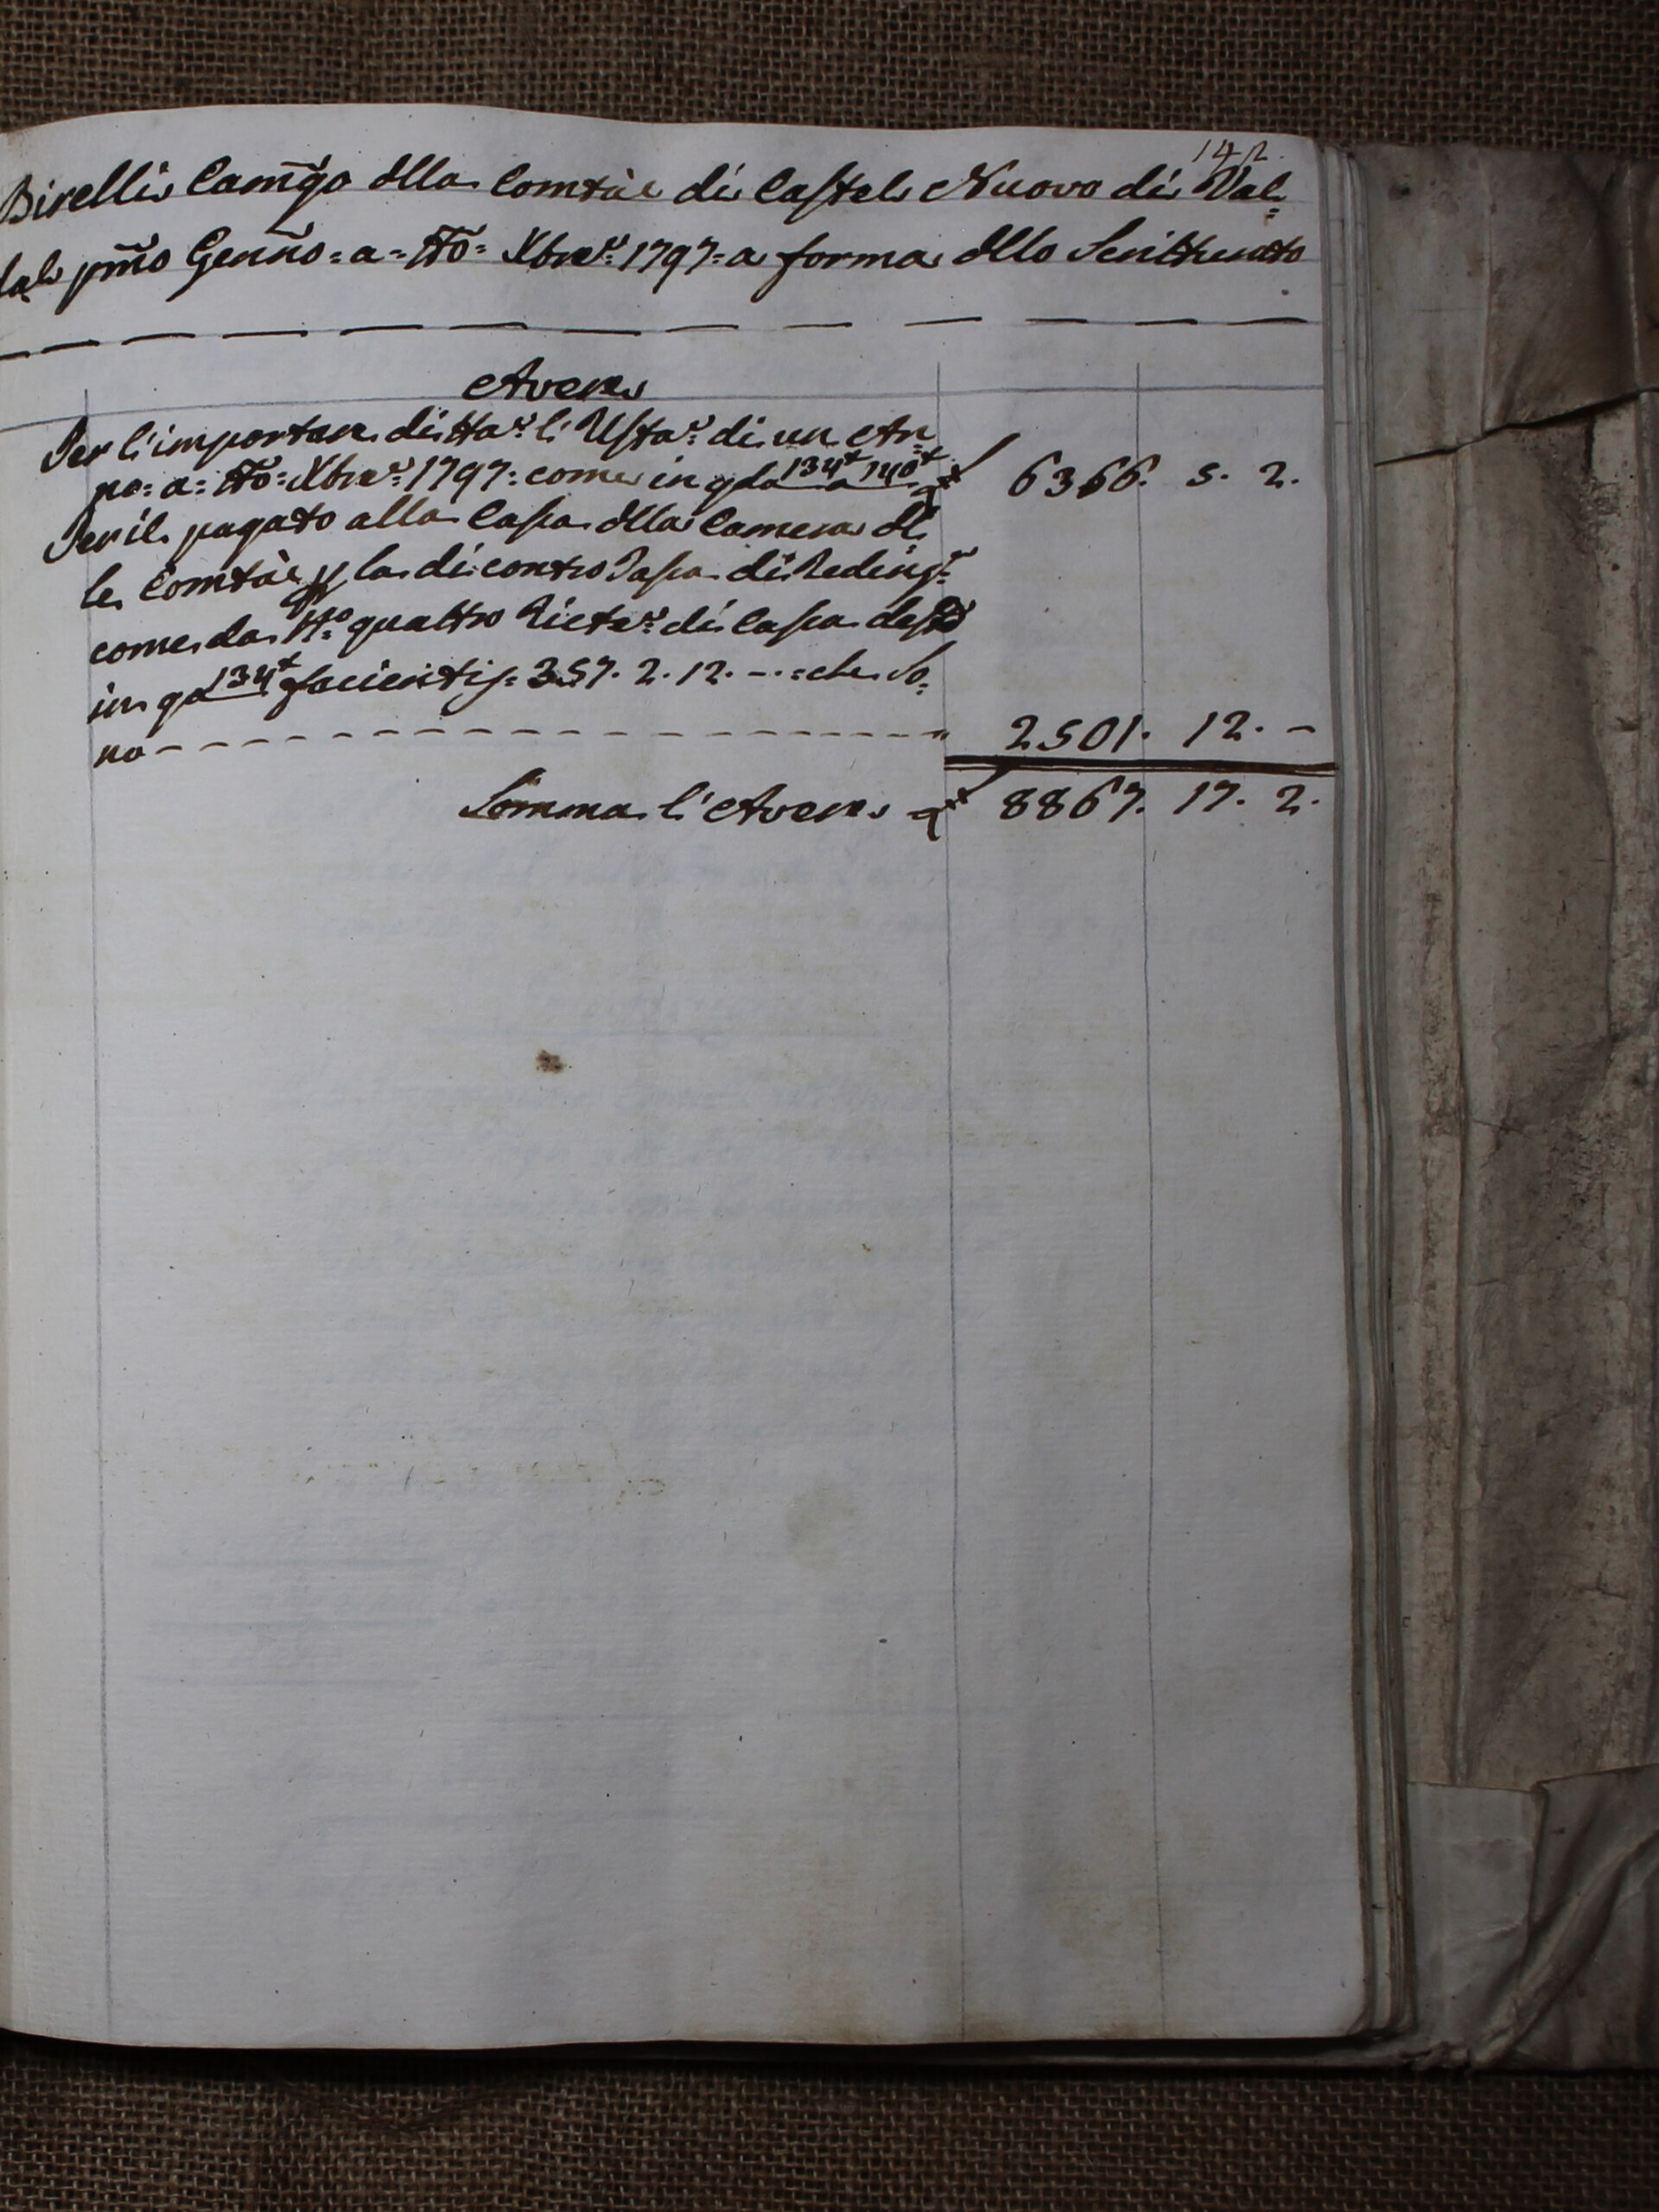 142.
Birelli Camgo dlla Comtàe di Castel Nuovo di Val=
dal pmo Genno = a = tto = Xbre 1797 = a forma dllo Scritturato
Avere
Per l'importare di tta: l'Usta: di un An=
no = a = tto = Xbre: 1797: come in qdo 134 t a 140 t 6366. 5. 2.
Per il pagato alla Cassa dlla Camera dl=
le Comtàe p la di contro Tassa di Reding:
come da No: quattro Ricte: di Cassa
in qdo 134 t facienti = 357. 2. 12. - = che so=
no 2501. 12. -
Somma l'Avere 8867. 17. 2.